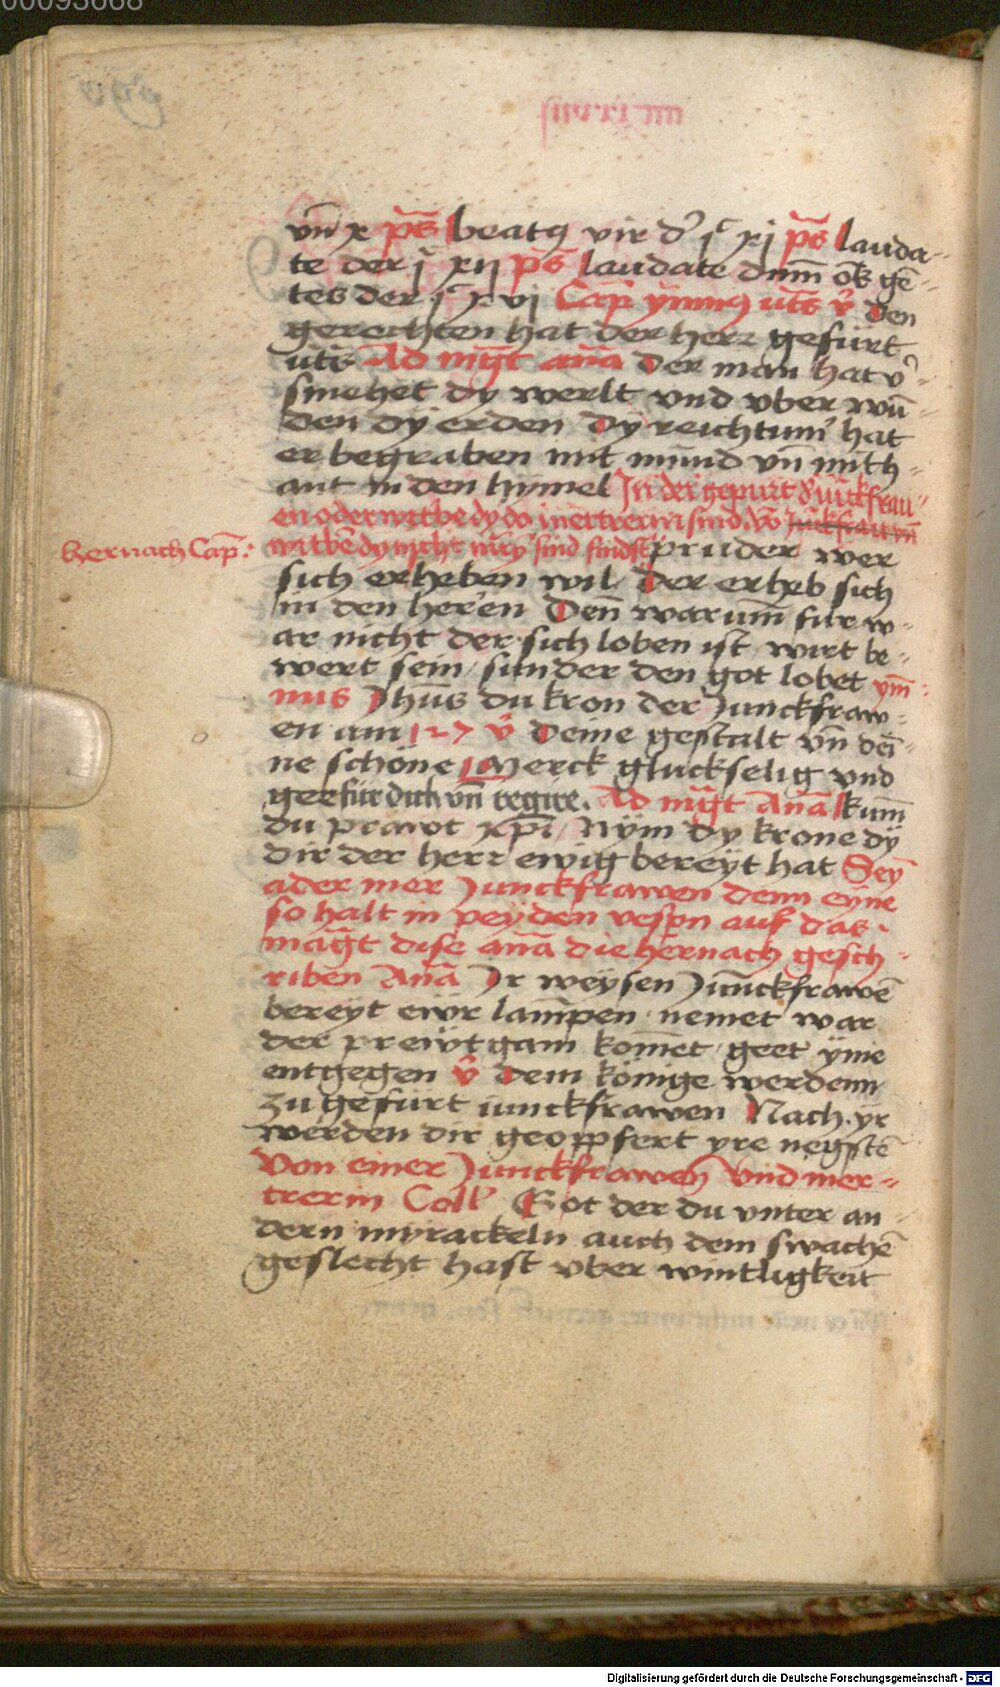 00093668
vn̄ x ps̄ beatꝯ vir dʼ j͑ xj ps̄ lauda-
te der j͑ xij ps̄ laudate dnm̄ om̄ gē-
tes der j͑ x vj Cap̄ ymnꝯ uts̄ v̄ den
gerechten hat der herr gefürt
uts̄ Ad mg̃t anā der man hat vʼ-
smehet dy werlt vnd vber wū-
den dy erden dy reichtum hat
er begraben mit mund vn̄ mit h-
ant in den hymel In der gepurt d' iūckfrau-
en oder witbe dy do mertrerin sind. vō Juckfrau vn̄
hernach Cap̄: witbe dy nicht mey sind findst pruder wer
sich erheben wil Der erheb sich
in den herʼen Denn̄ warum̄ fur w-
ar nicht der sich loben ist wirt be-
wert sein / sunder den got lobet ym̄-
nus Jhus du kron der Junckfraw-
en am 127 v̄ Deine gestalt vn̄ dei-
ne schöne Merck gluckselig vnd
gee für dich vn̄ regire. Ad mg̃t Anā kum̄
du prawt xp̄i / Nym dy krone dy
dir der herr ewig bereyt hat Sey
ader mer Junckfrawen denn eyne
so halt in peyden vespn auf das
mag̃t dise anā die hernach gesch-
riben Anā Ir weysen Junckfrawē
bereyt ewr lampen nemet war
der prewtgam komet geet yme
entgegen v̄ Dem konige werdenn
zu gefurt iunckfrawen Nach yr
werden dir geopfert yre negstē
Von einer Junckfrawen vnd mer-
trerin Coll' Got der du vnter an-
dern myrackeln auch dem swachē
geslecht hast vber wintligkeit
Digitalisierung gefördert durch die Deutsche Forschungsgemeinschaft - DFG